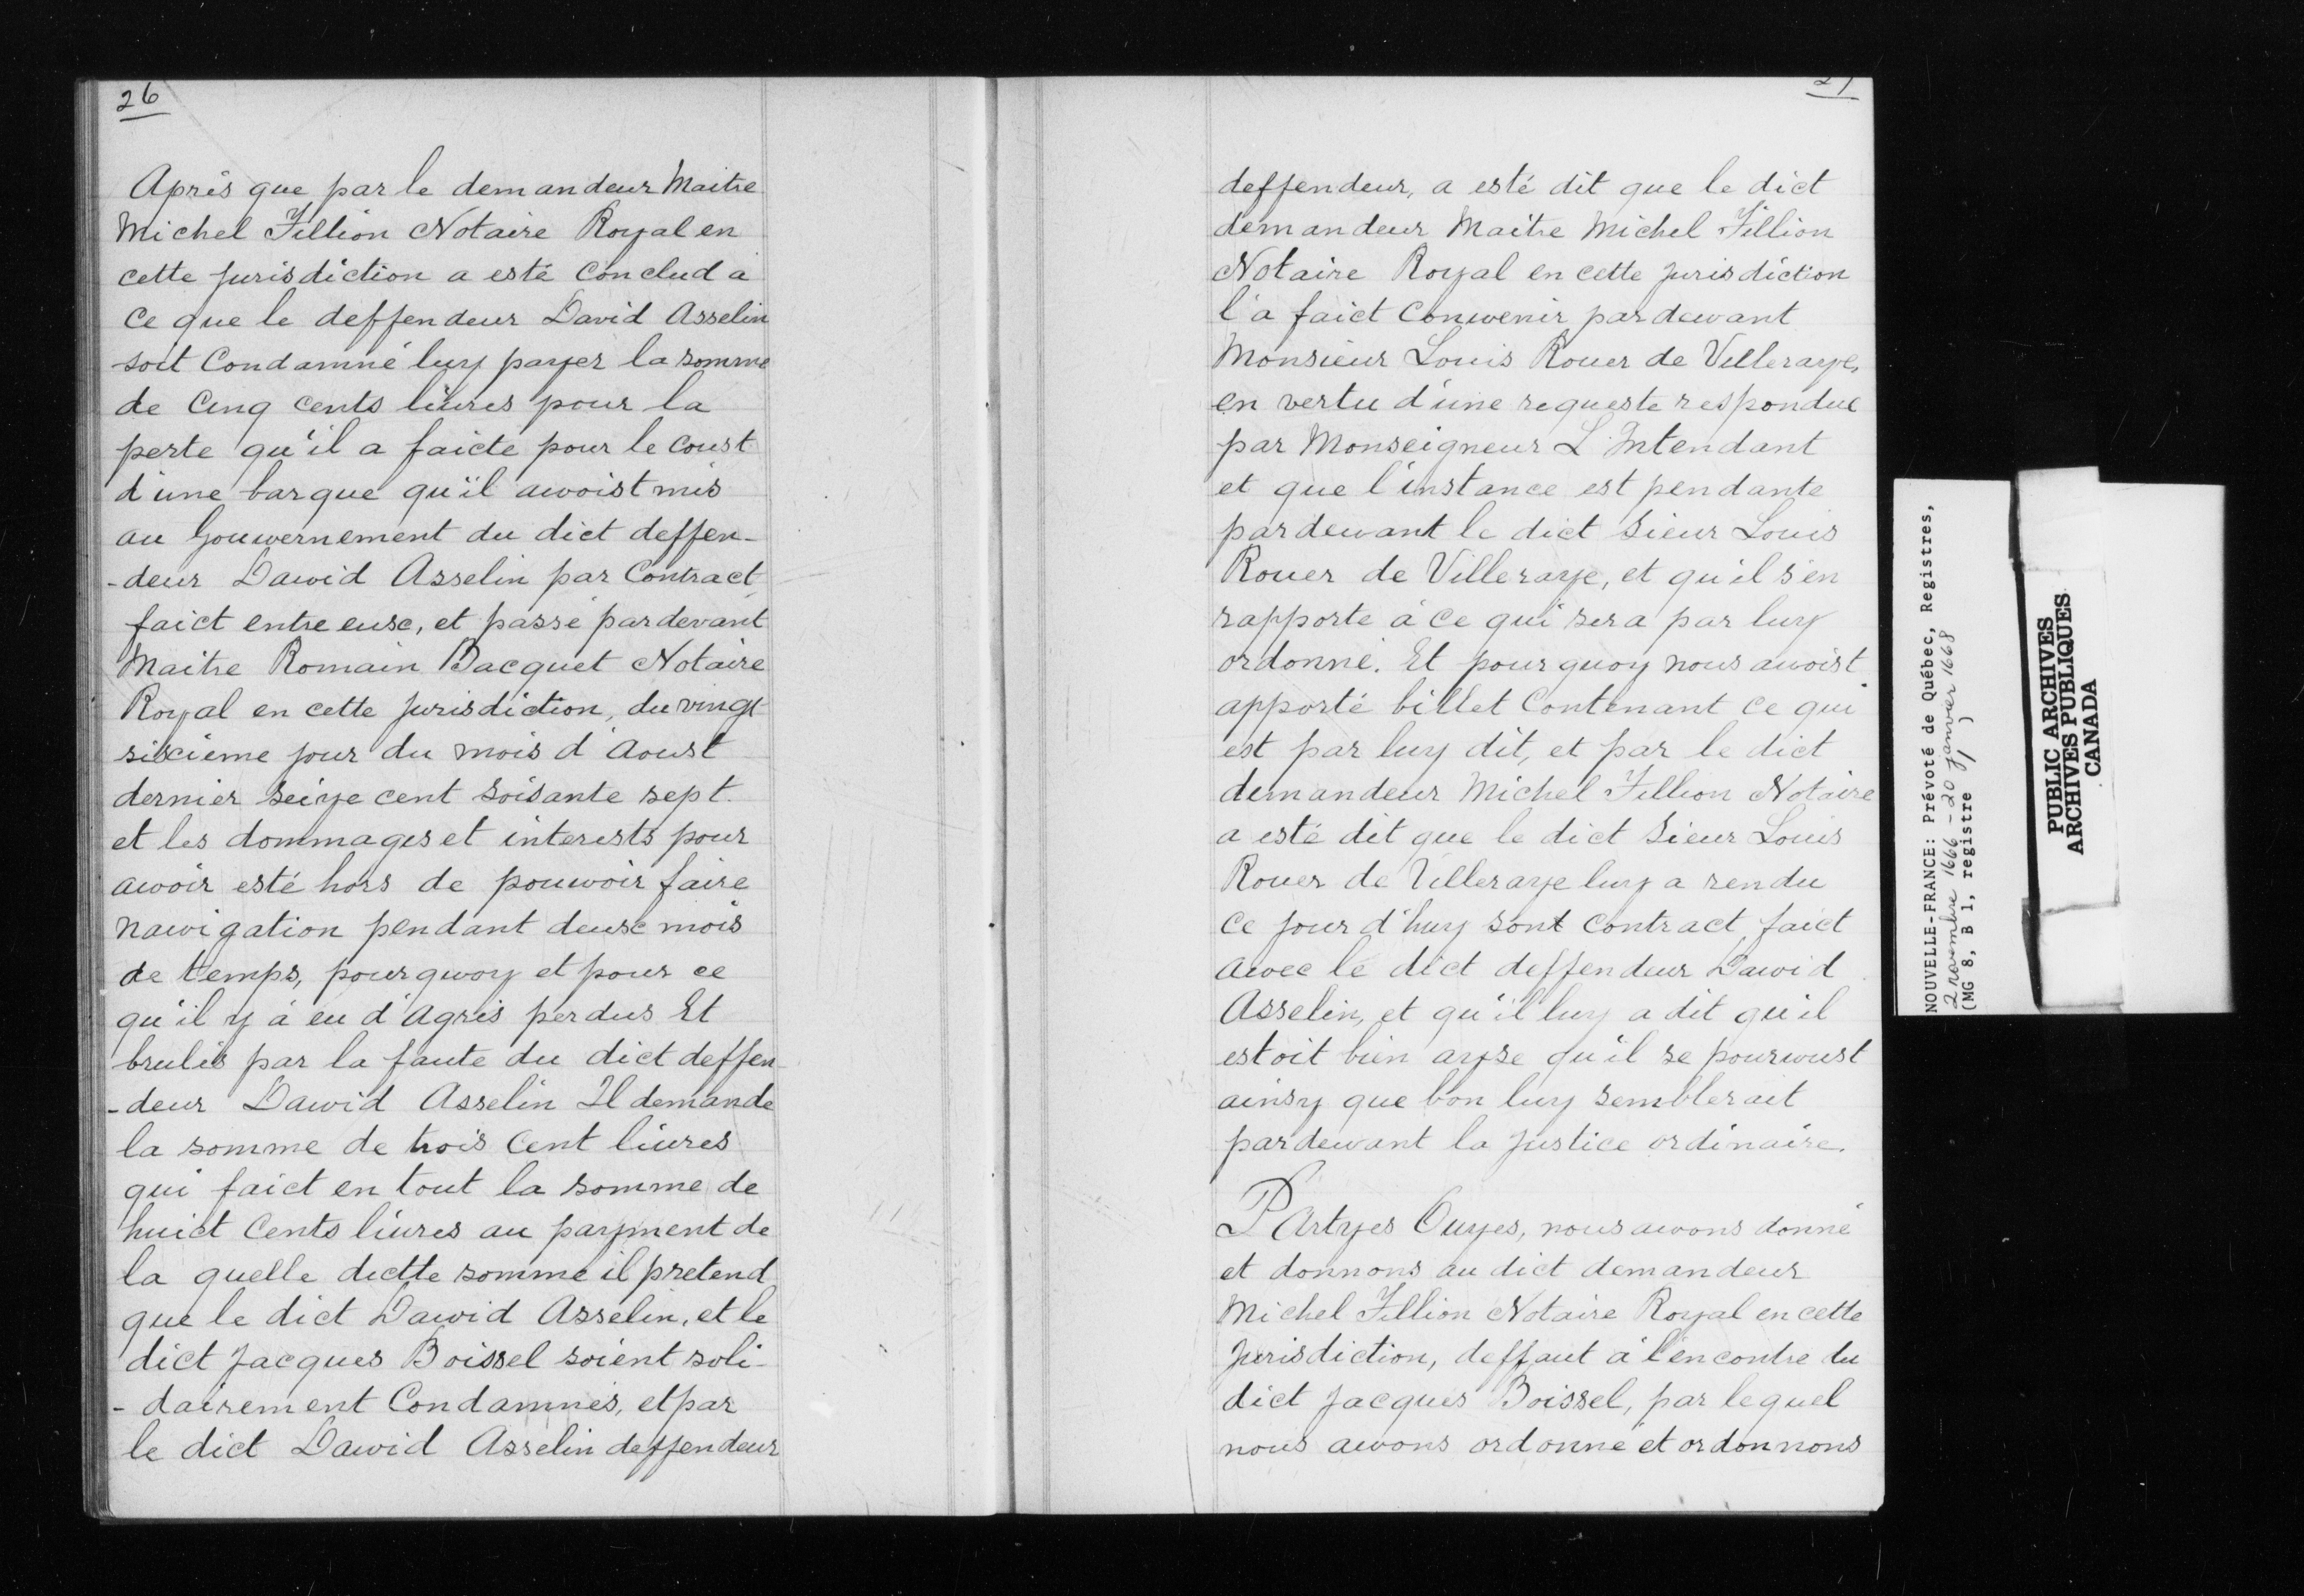 26
Après que par le demandeur Maitre
Michel Fillion Notaire Royal en
cette Jurisdiction a esté Conclud à
Ce que le deffendeur David Asselin
soit Condamné luy payer la somme
de Cinq cents liures pour la
perte qu'il a faicte pour le coust
d'une barque qu'il awoist mis
au Gouwernement du dict deffen-
-deur Dawid Asselin par Contract
faict entre euse, et passé pardevant
Maitre Romain Bacquet Notaire
Royal en cette Jurisdiction, du vingt
siscieme jour du mois d'Aoust
dernier Seize cent soisante sept
et les dommages et interests pour
awoir esté hors de pouwoir faire
nawigation pendant deuse mois
de temps, pourquoy et pour ce
qu'il y à eu d'Agris perdus Et
brulés par la faute du dict deffen-
-deur Dawid Asselin Il demande
la somme de trois Cent liures
qui faict en tout la somme de
huict Cents liures au payment de
la quelle dictte somme il pretend
que le dict Dawid Asselin, et le
dict Jacques Boissel soient soli-
-dairement Condamnés, et par
le dict Dawid Asselin deffendeur
27
deffendeur, a esté dit que le dict
demandeur Maitre Michel Fillion
Notaire Royal en cette Jurisdiction
l'a faict Conwenir pardewant
Monsieur Louis Rouer de Villeraye,
en vertu d'une requeste respondue
par Monseigneur L'Intendant
et que l'instance est pendante
pardewant le dict Sieur Louis
Rouer de Villeraye, et qu'il s'en
rapporte à ce qui sera par luy
ordonné. Et pourquoy nous awoist
apporté billet Contenant ce qui
est par luy dit, et par le dict
demandeur Michel Fillion Notaire
a esté dit que le dict Sieur Louis
Rouer de Villeraye luy a rendu
ce jour d'huy sont contract, faict
awec le dict deffendeur Dawid
Asselin, et qu'il luy a dit qu'il
estoit bien ayse qu'il se pourwust
ainsy que bon luy sembleroit
pardewant la Justice ordinaire.
PArtyes Ouyes, nous awons donné
et donnons au dict demandeur
Michel Fillion Notaire Royal en cette
Jurisdiction, deffaut à l'encontre du
dict Jacques Boissel, par lequel
nous awons ordonné et ordonnons
NOUVELLE-FRANCE: Prévoté de Québec, Registres,
2 novembre 1666 - 20 janvier 1668
(MG 8, B 1, registre 1)
PUBLIC ARCHIVES
ARCHIVES PUBLIQUES
CANADA